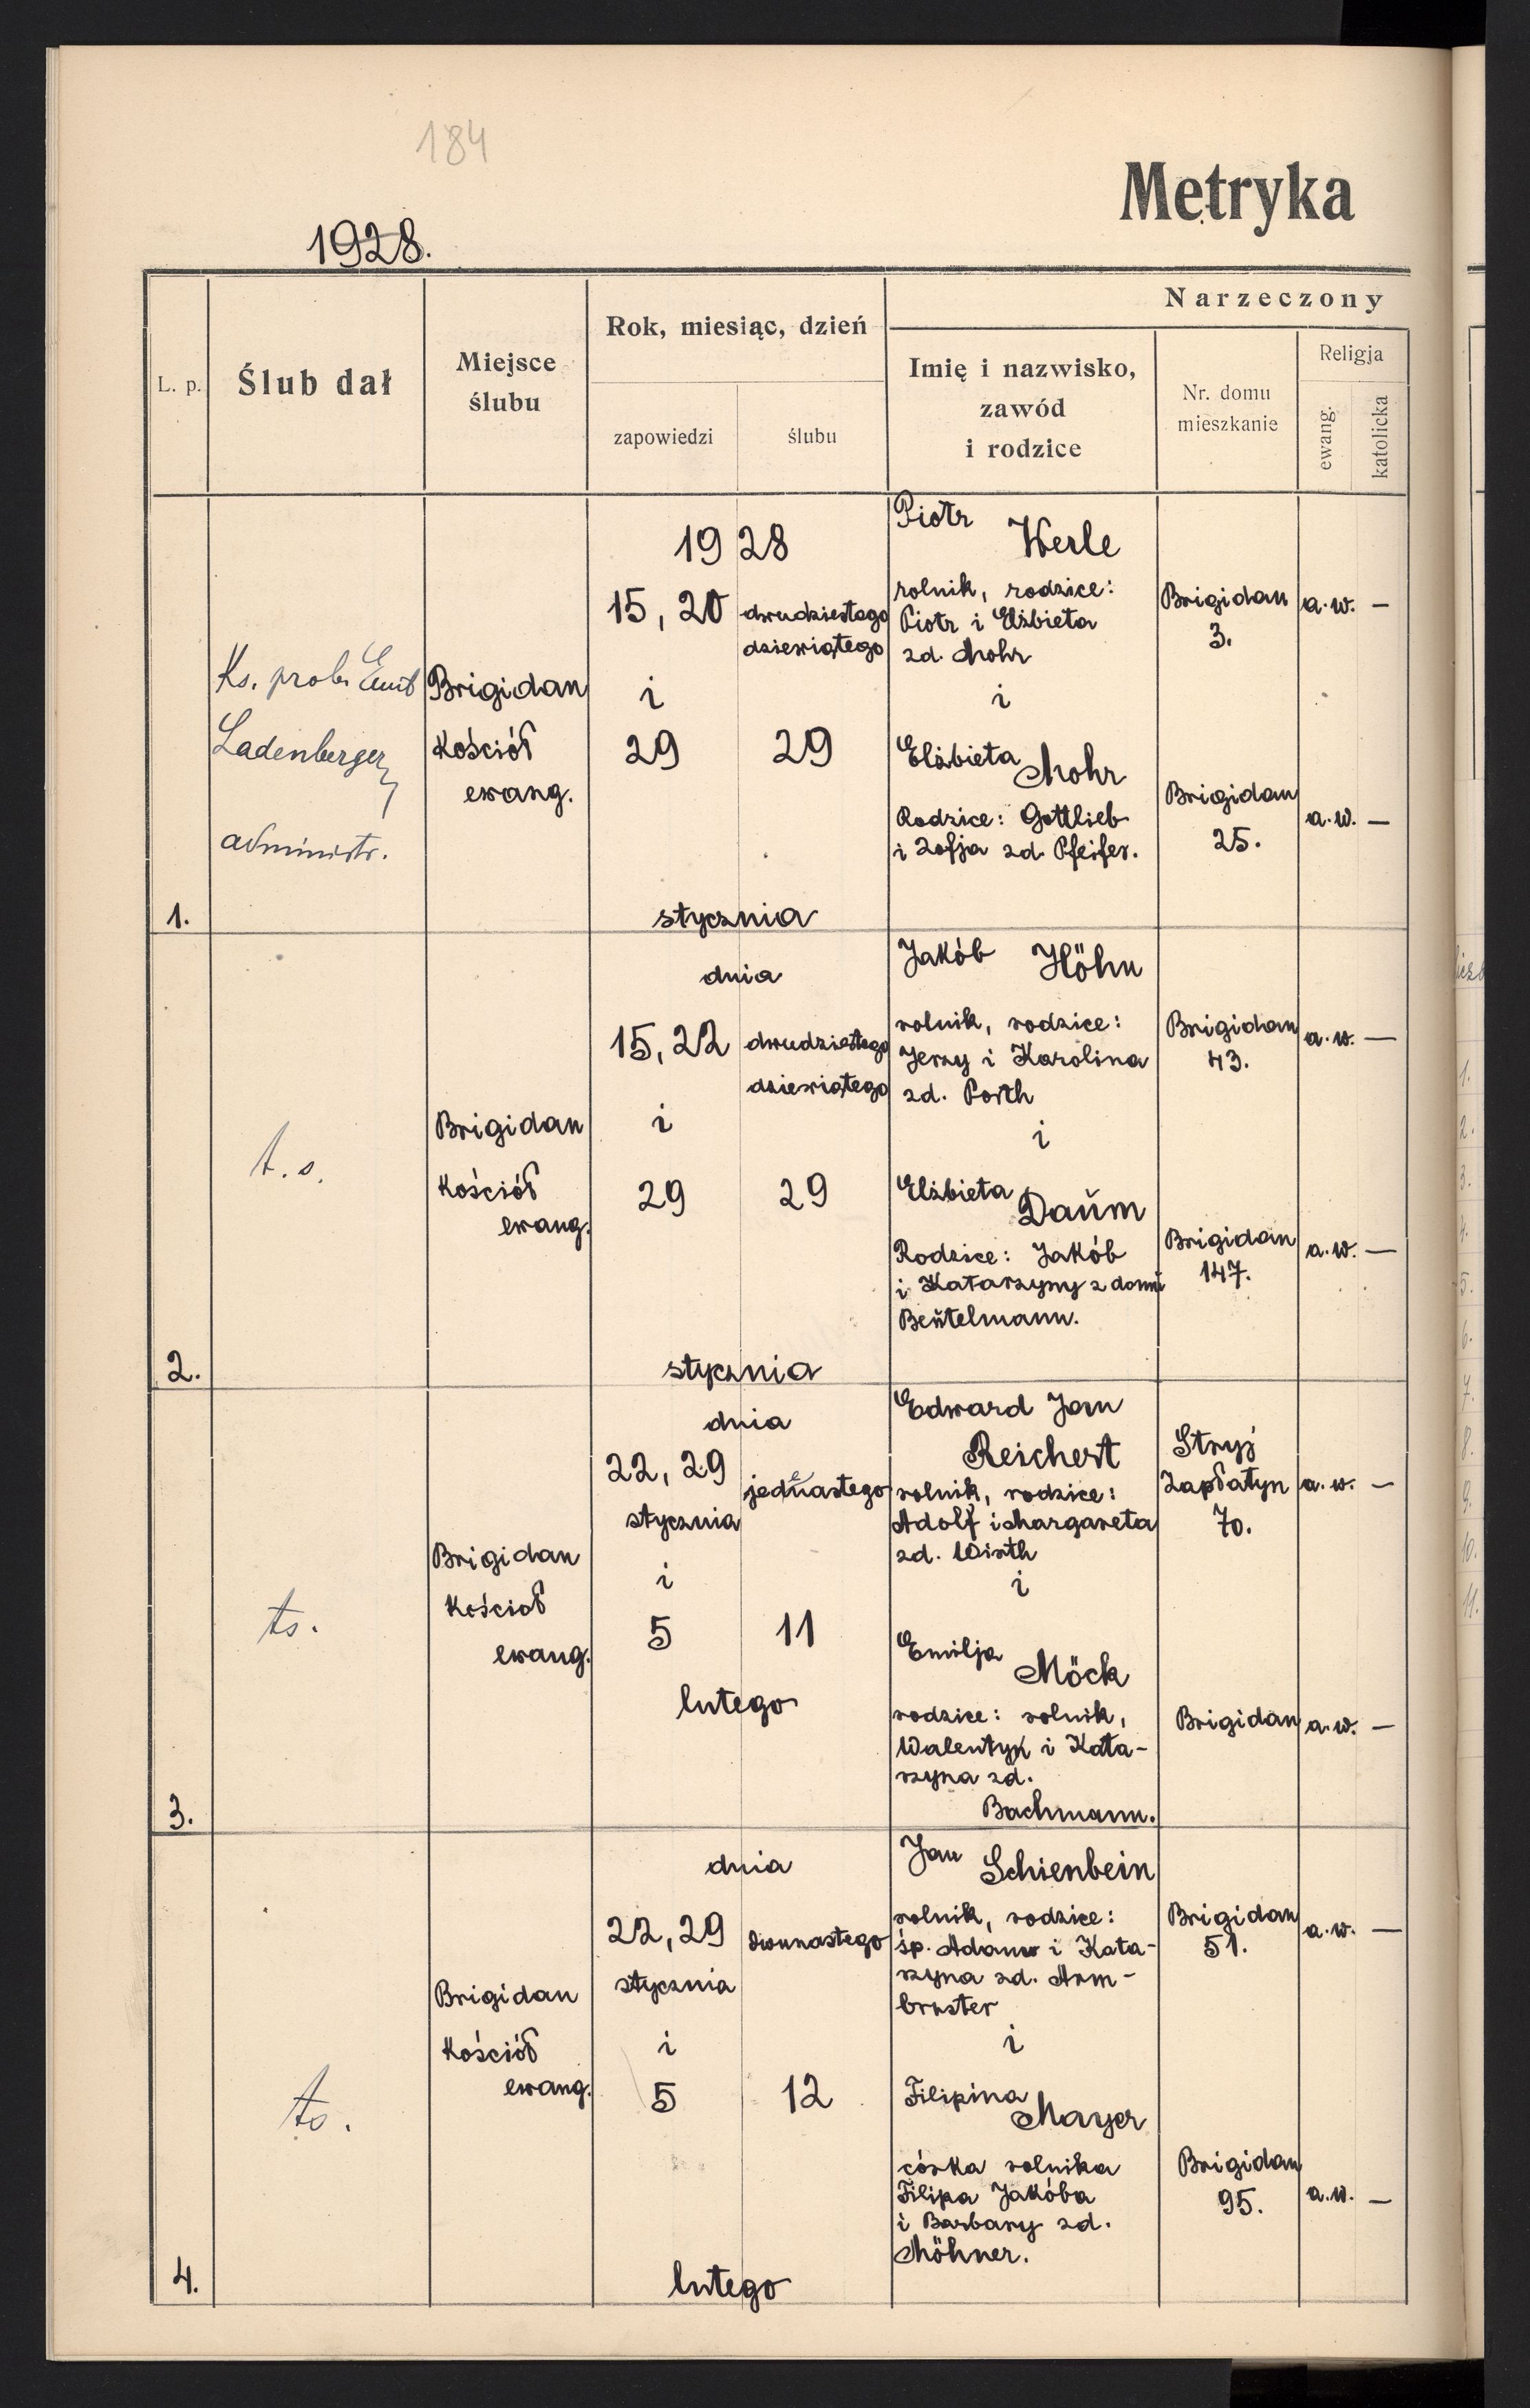 184
Metryka
1928.
Narzeczony
L. p.
Ślub dał
Miejsce
ślubu
Rok, miesiąc, dzień
zapowiedzi
ślubu
Imię i nazwisko,
zawód
i rodzice
Nr. domu
mieszkanie
Religja
ewang.
katolicka
1.
Ks. prob. Emil
Ladenberger,
administr.
Brigidan
Kościół
ewang.
1928
15, 20
i
29
dwudziestego
dziewiątego
29
stycznia
Piotr
Werle
rolnik, rodzice:
Piotr i Elżbieta
zd. Mohr
i
Elżbieta
Mohr
Rodzice: Gottlieb
i Zofja zd. Pfeifer.
Brigidan
3.
a.w. —
Brigidan
25.
a.w. —
2.
t.s.
Brigidan
Kościół
ewang.
dnia
15, 22
i
29
dwudziestego
dziewiątego
29
stycznia
Jakób Höhn
rolnik, rodzice:
Jerzy i Karolina
zd. Porth
i
Elżbieta
Daŭm
Rodzice: Jakób
i Katarzyny z domŭ
Beŭtelmann.
Brigidan
43.
a.w. —
Brigidan
147.
a.w. —
3.
ts.
Brigidan
Kościół
ewang.
dnia
22, 29
stycznia
i
5
jedenastego
11
lutego
Edward Jan
Reichert
rolnik, rodzice:
Adolf i Margareta
zd. Wirth
i
Emilja
Möck
rodzice: rolnik,
Walentyn i Kata-
rzyna zd.
Bachmann.
Stryj
Zapłatyn
70.
a.w. —
Brigidan
a.w. —
4.
ts.
Brigidan
Kościół
ewang.
dnia
22, 29
stycznia
i
5
dwunastego
12
lutego
Jan
Schienbein
rolnik, rodzice:
śp. Adam i Kata-
rzyna zd. Arm-
brster
i
Filipina
Mayer
córka rolnika
Filipa Jakóba
i Barbary zd.
Möhner.
Brigidan
51.
a.w. —
Brigidan
95.
a.w. —
1.
2.
3.
4.
5.
6.
7.
8.
9.
10.
11.